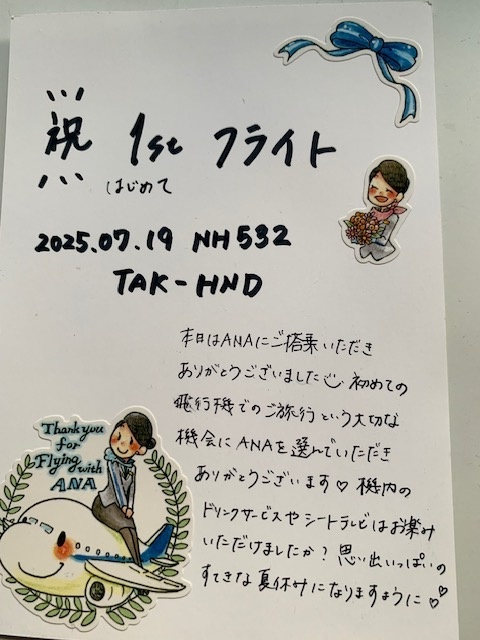 祝 1st フライト
はじめて
2025.07.19 NH532
TAK-HND
本日はANAにご搭乗いただき
ありがとうございました 初めての
飛行機でのご旅行という大切な
機会にANAを選んでいただき
ありがとうございます♡ 機内の
ドリンクサービスやシートテレビはお楽み
いただけましたか? 思い出いっぱいの
すてきな夏休みになりますように♡♡
Thank you
for
Flying with
ANA